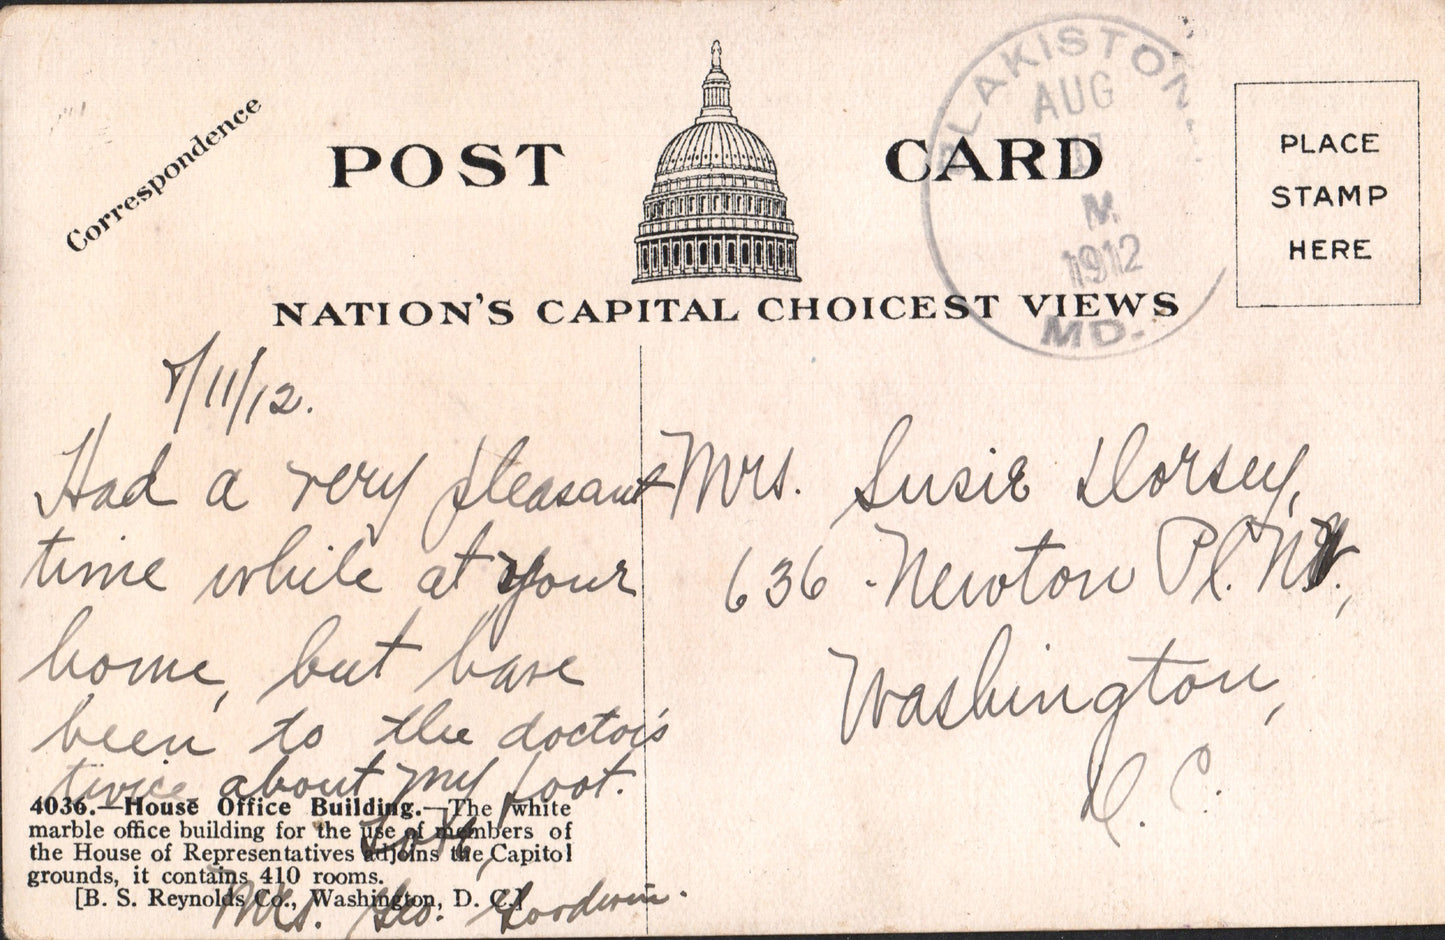 Correspondence
POST CARD
NATION'S CAPITAL CHOICEST VIEWS
BLAKISTON.
AUG
M
1912
MD.
PLACE
STAMP
HERE
8/11/12.
Had a very pleasant
time while at your
home, but have
been to the doctor's
twice about my foot.
Love,
Mrs. Geo. Goodwin.
Mrs. Susie Dorsey,
636 Newton Pl. NW.,
Washington,
D. C.
4036.—House Office Building.—The white
marble office building for the use of members of
the House of Representatives adjoins the Capitol
grounds, it contains 410 rooms.
[B. S. Reynolds Co., Washington, D. C.]